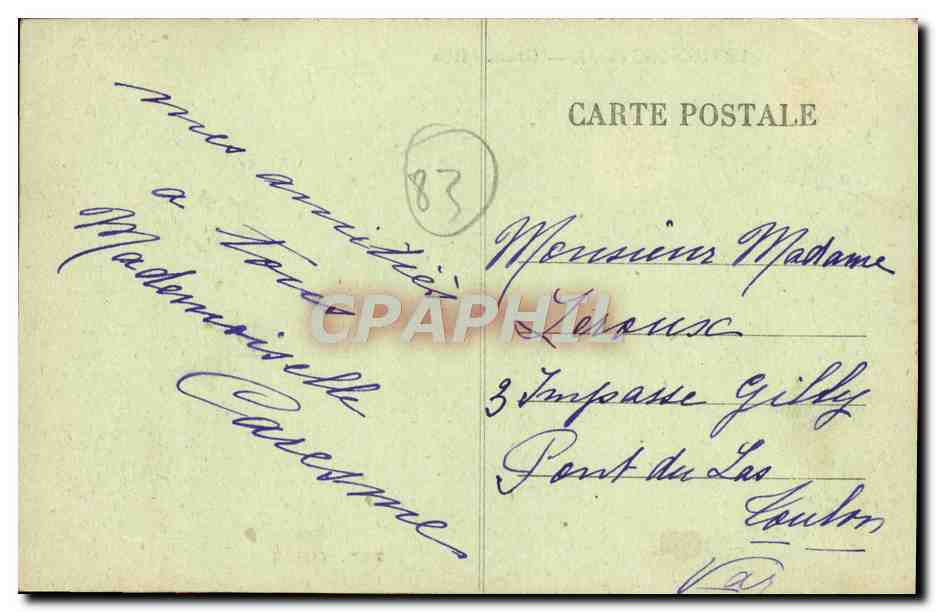 CARTE POSTALE
mes amitiés
a tous
Mademoiselle
Caresme
83
Monsieur Madame
Leroux
3 Impasse Gilly
Pont du Las
Toulon
Var
CPAPHIL